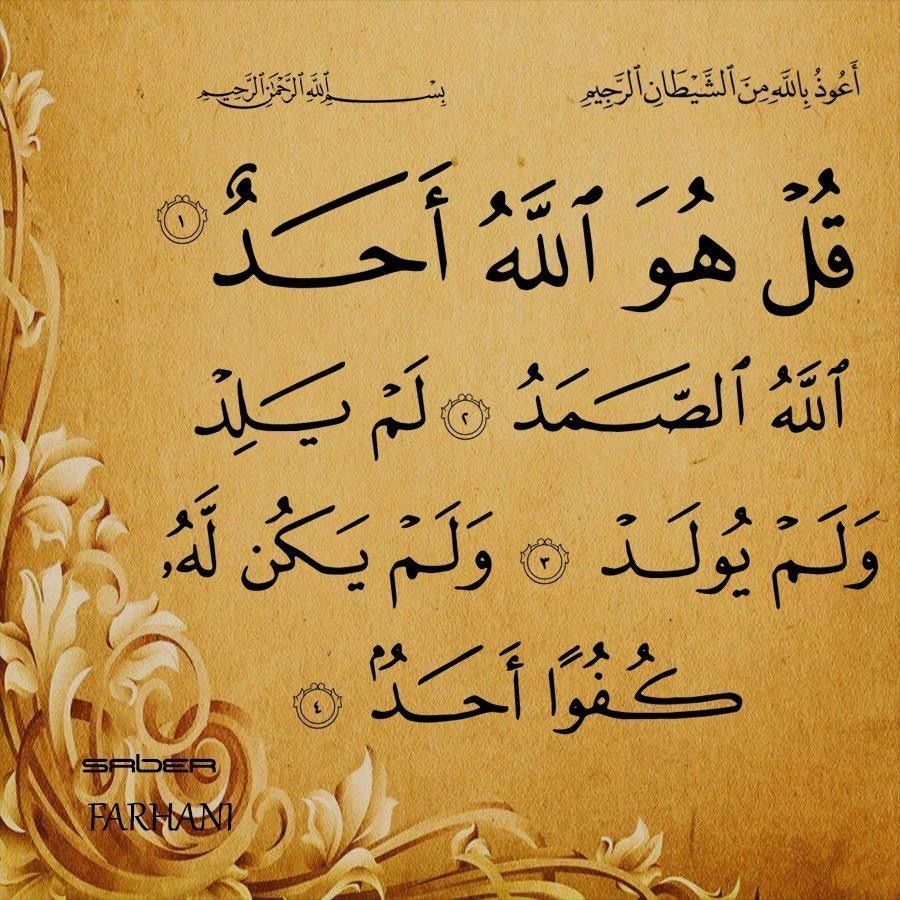 أَعُوذُ بِاللَّهِ مِنَ ٱلشَّيْطَانِ ٱلرَّجِيمِ
بِسْمِ ٱللَّهِ ٱلرَّحْمَٰنِ ٱلرَّحِيمِ
قُلْ هُوَ ٱللَّهُ أَحَدٌ ١
ٱللَّهُ ٱلصَّمَدُ ٢ لَمْ يَلِدْ
وَلَمْ يُولَدْ ٣ وَلَمْ يَكُن لَّهُۥ
كُفُوًا أَحَدٌۢ ٤
SABER
FARHANI